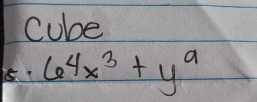 Cube
5. 64x³ + y⁹